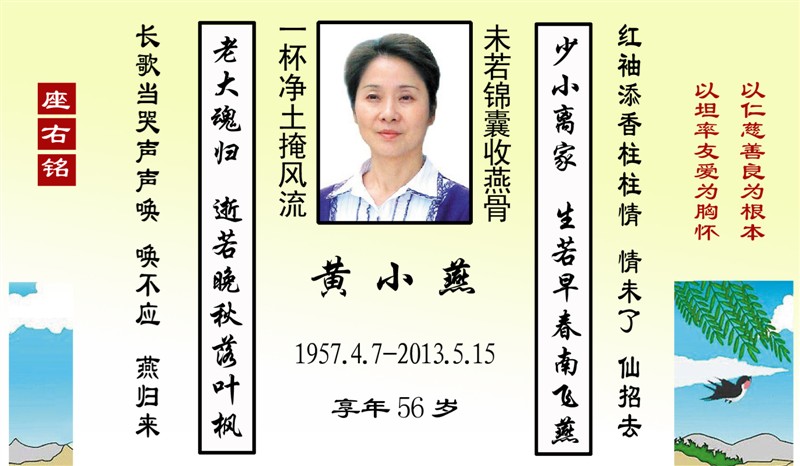 以仁慈善良为根本
以坦率友爱为胸怀
红袖添香柱柱情 情未了 仙招去
少小离家 生若早春南飞燕
未若锦囊收燕骨
一杯净土掩风流
黄小燕
1957.4.7-2013.5.15
享年56岁
老大魂归 逝若晚秋落叶枫
长歌当哭声声唤 唤不应 燕归来
座右铭